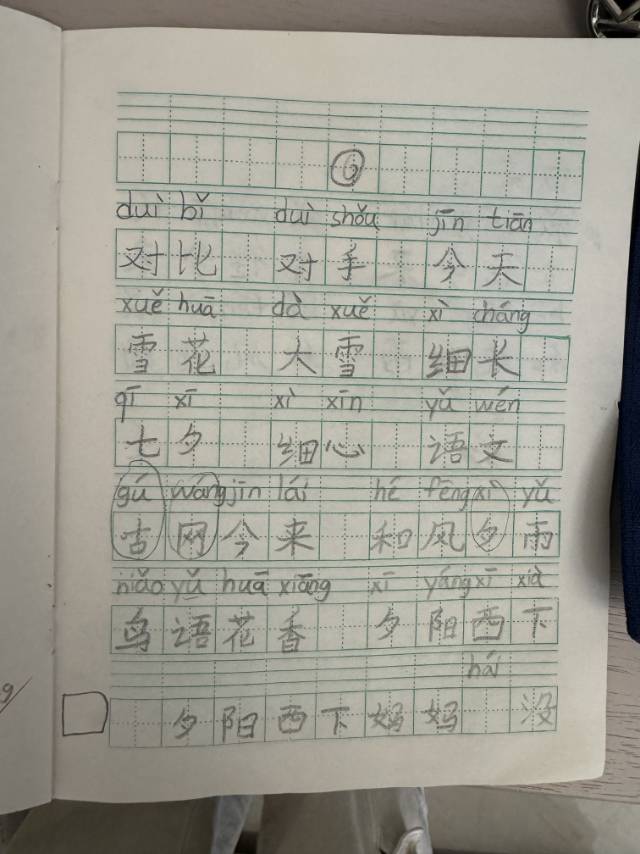 duì bǐ duì shǒu jīn tiān
对比 对手 今天
xuě huā dà xuě xì cháng
雪花 大雪 细长
qī xī xì xīn yǔ wén
七夕 细心 语文
gú wáng jīn lái hé fēng xì yǔ
古网今来 和风夕雨
niǎo yǔ huā xiāng xī yáng xī xià
鸟语花香 夕阳西下
hái
夕阳西下妈妈 没